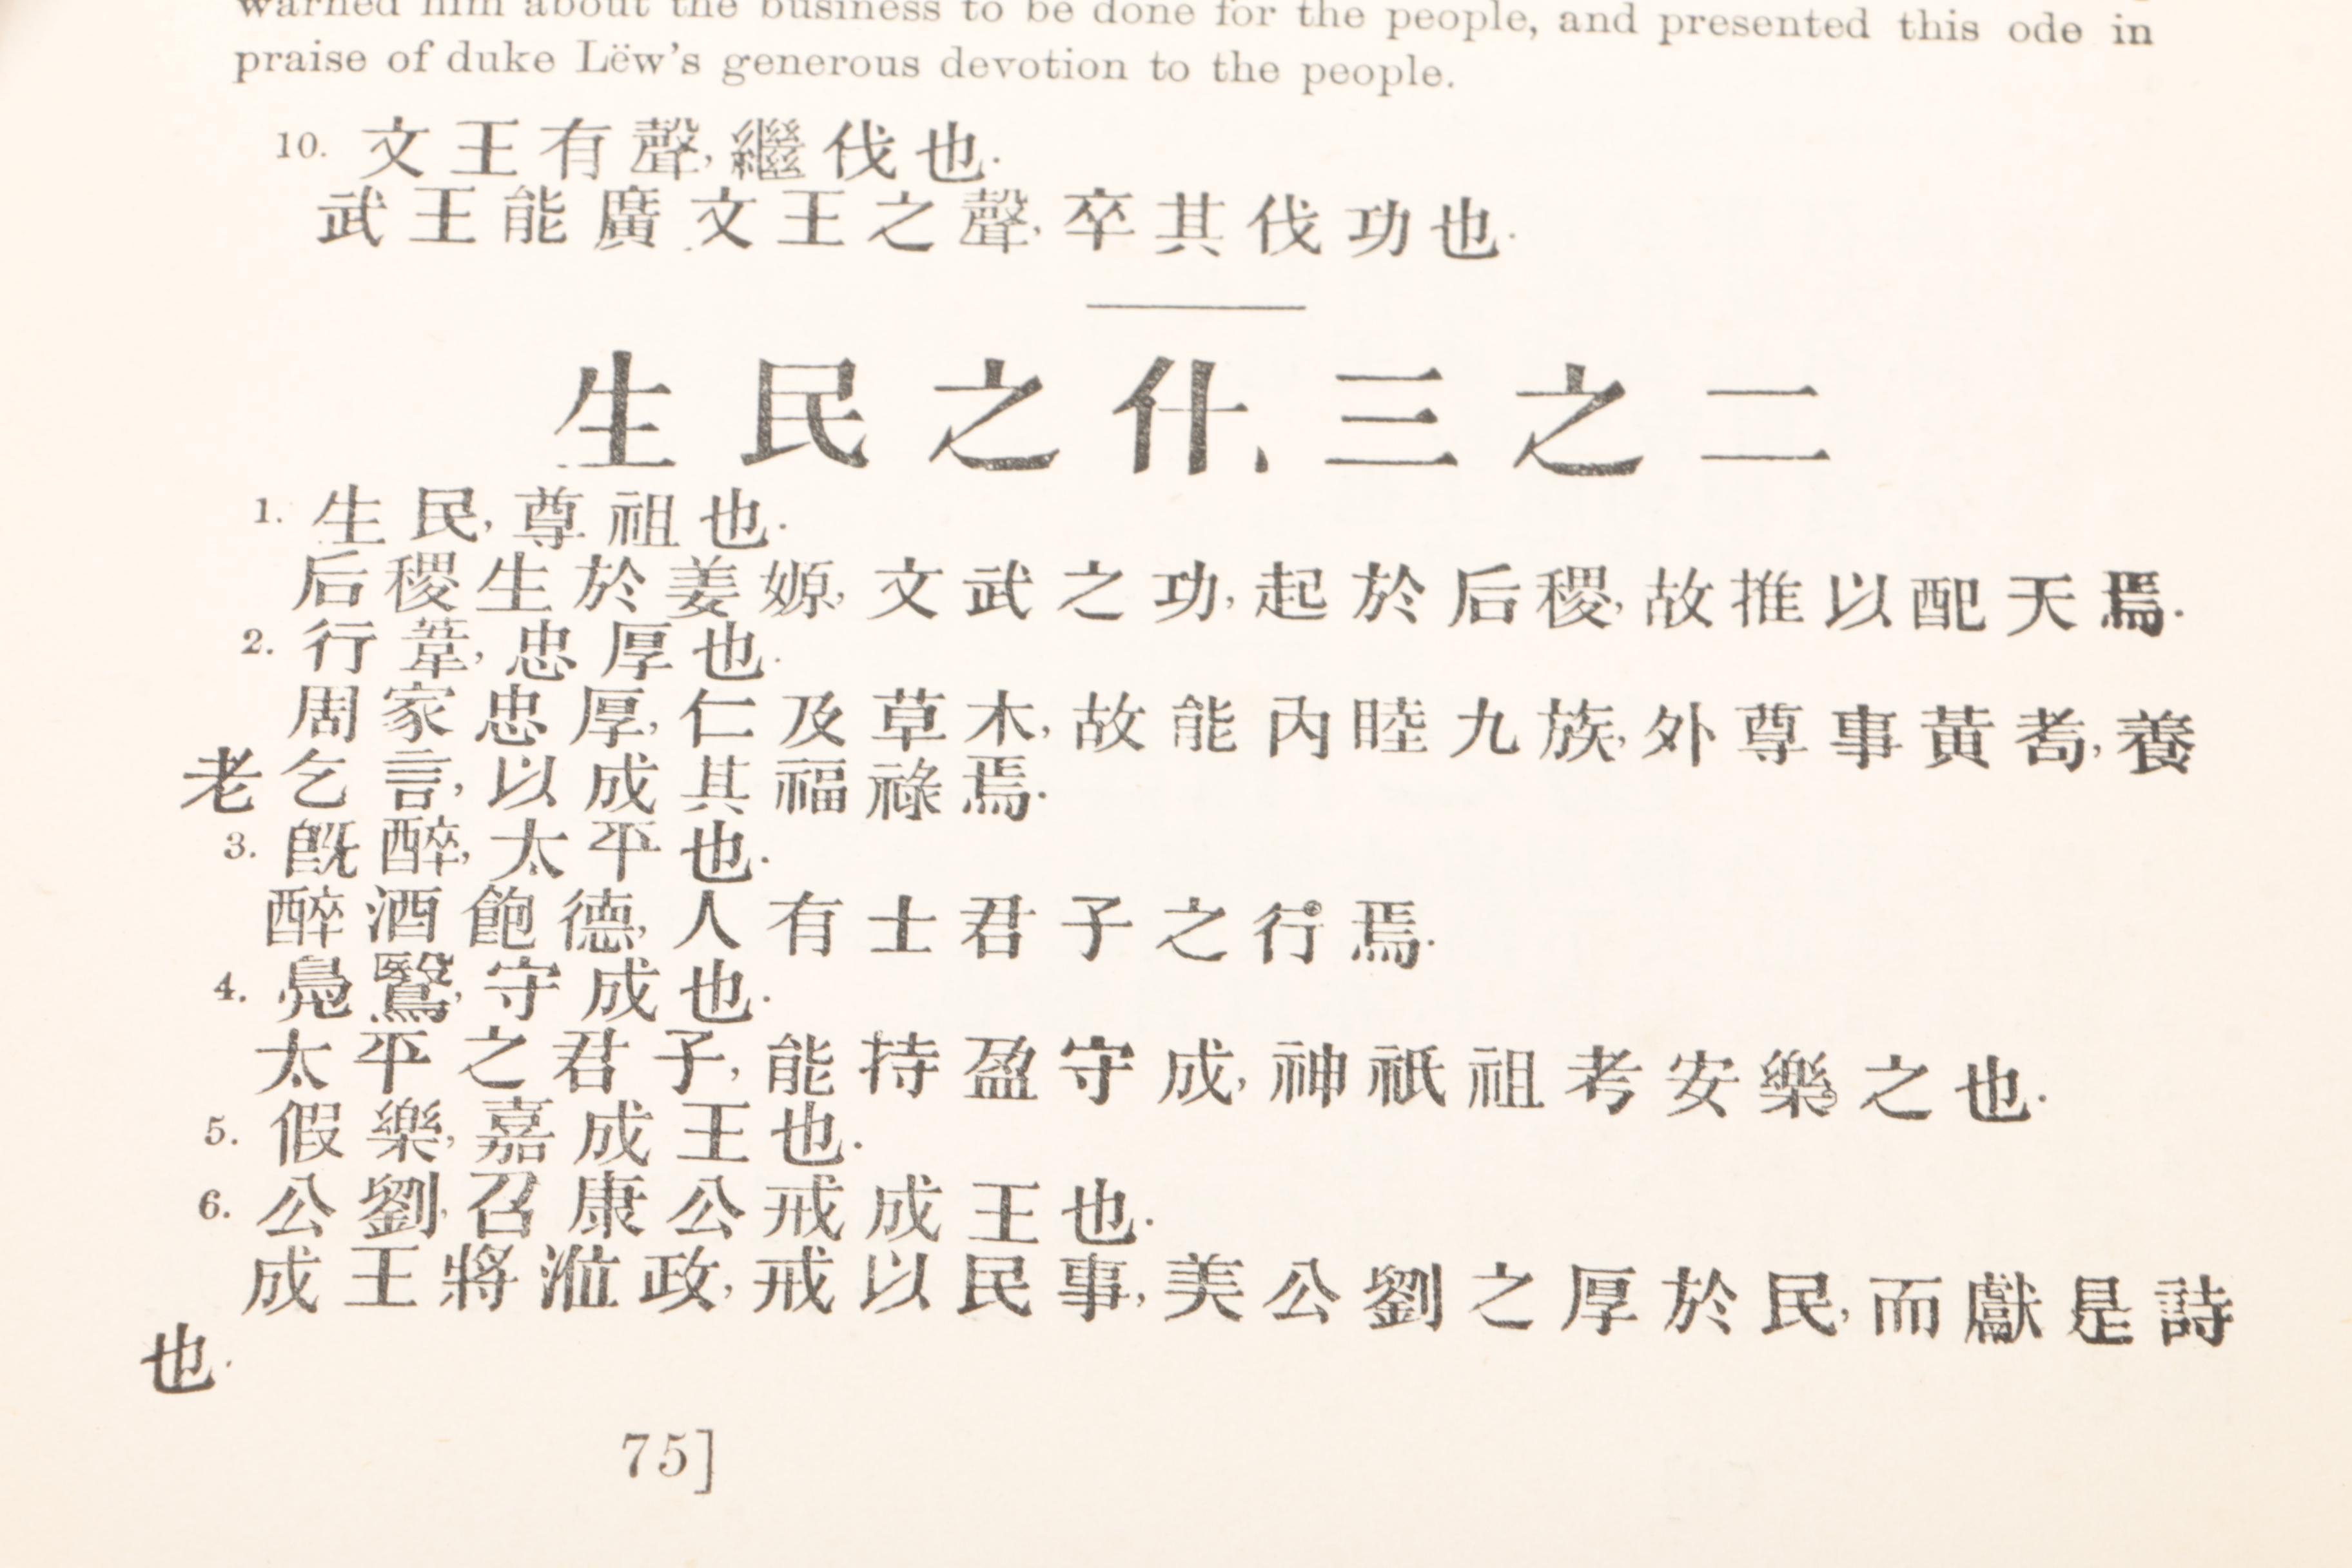 warned him about the business to be done for the people, and presented this ode in
praise of duke Lëw's generous devotion to the people.
10. 文王有聲, 繼伐也.
武王能廣文王之聲, 卒其伐功也.
生民之什, 三之二
1. 生民, 尊祖也.
后稷生於姜嫄, 文武之功, 起於后稷, 故推以配天焉.
2. 行葦, 忠厚也.
周家忠厚, 仁及草木, 故能內睦九族, 外尊事黃耉, 養
老乞言, 以成其福祿焉.
3. 既醉, 太平也.
醉酒飽德, 人有士君子之行焉.
4. 鳧鷖, 守成也.
太平之君子, 能持盈守成, 神祇祖考安樂之也.
5. 假樂, 嘉成王也.
6. 公劉, 召康公戒成王也.
成王將涖政, 戒以民事, 美公劉之厚於民, 而獻是詩
也.
75]